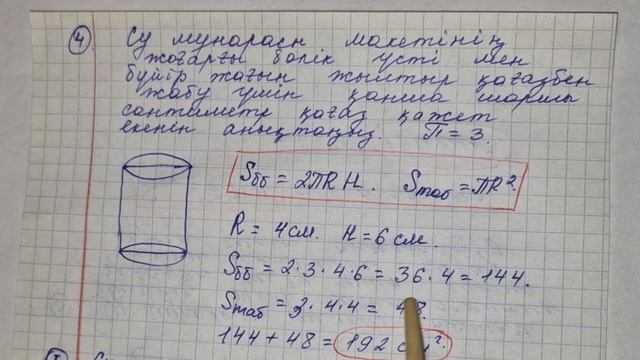 ④ Су мунарасы макетінің
жоғарғы бөлік үсті мен
бүйір жағын жылтыр қағазбен
жабу үшін қанша шаршы
сантиметр қағаз қажет
екенін анықтаңыз. П = 3.
Sбб = 2ПRH. Sтаб = ПR².
R = 4 см. H = 6 см.
Sбб = 2·3·4·6 = 36·4 = 144.
Sтаб = 3·4·4 = 48.
144 + 48 = 192 см².